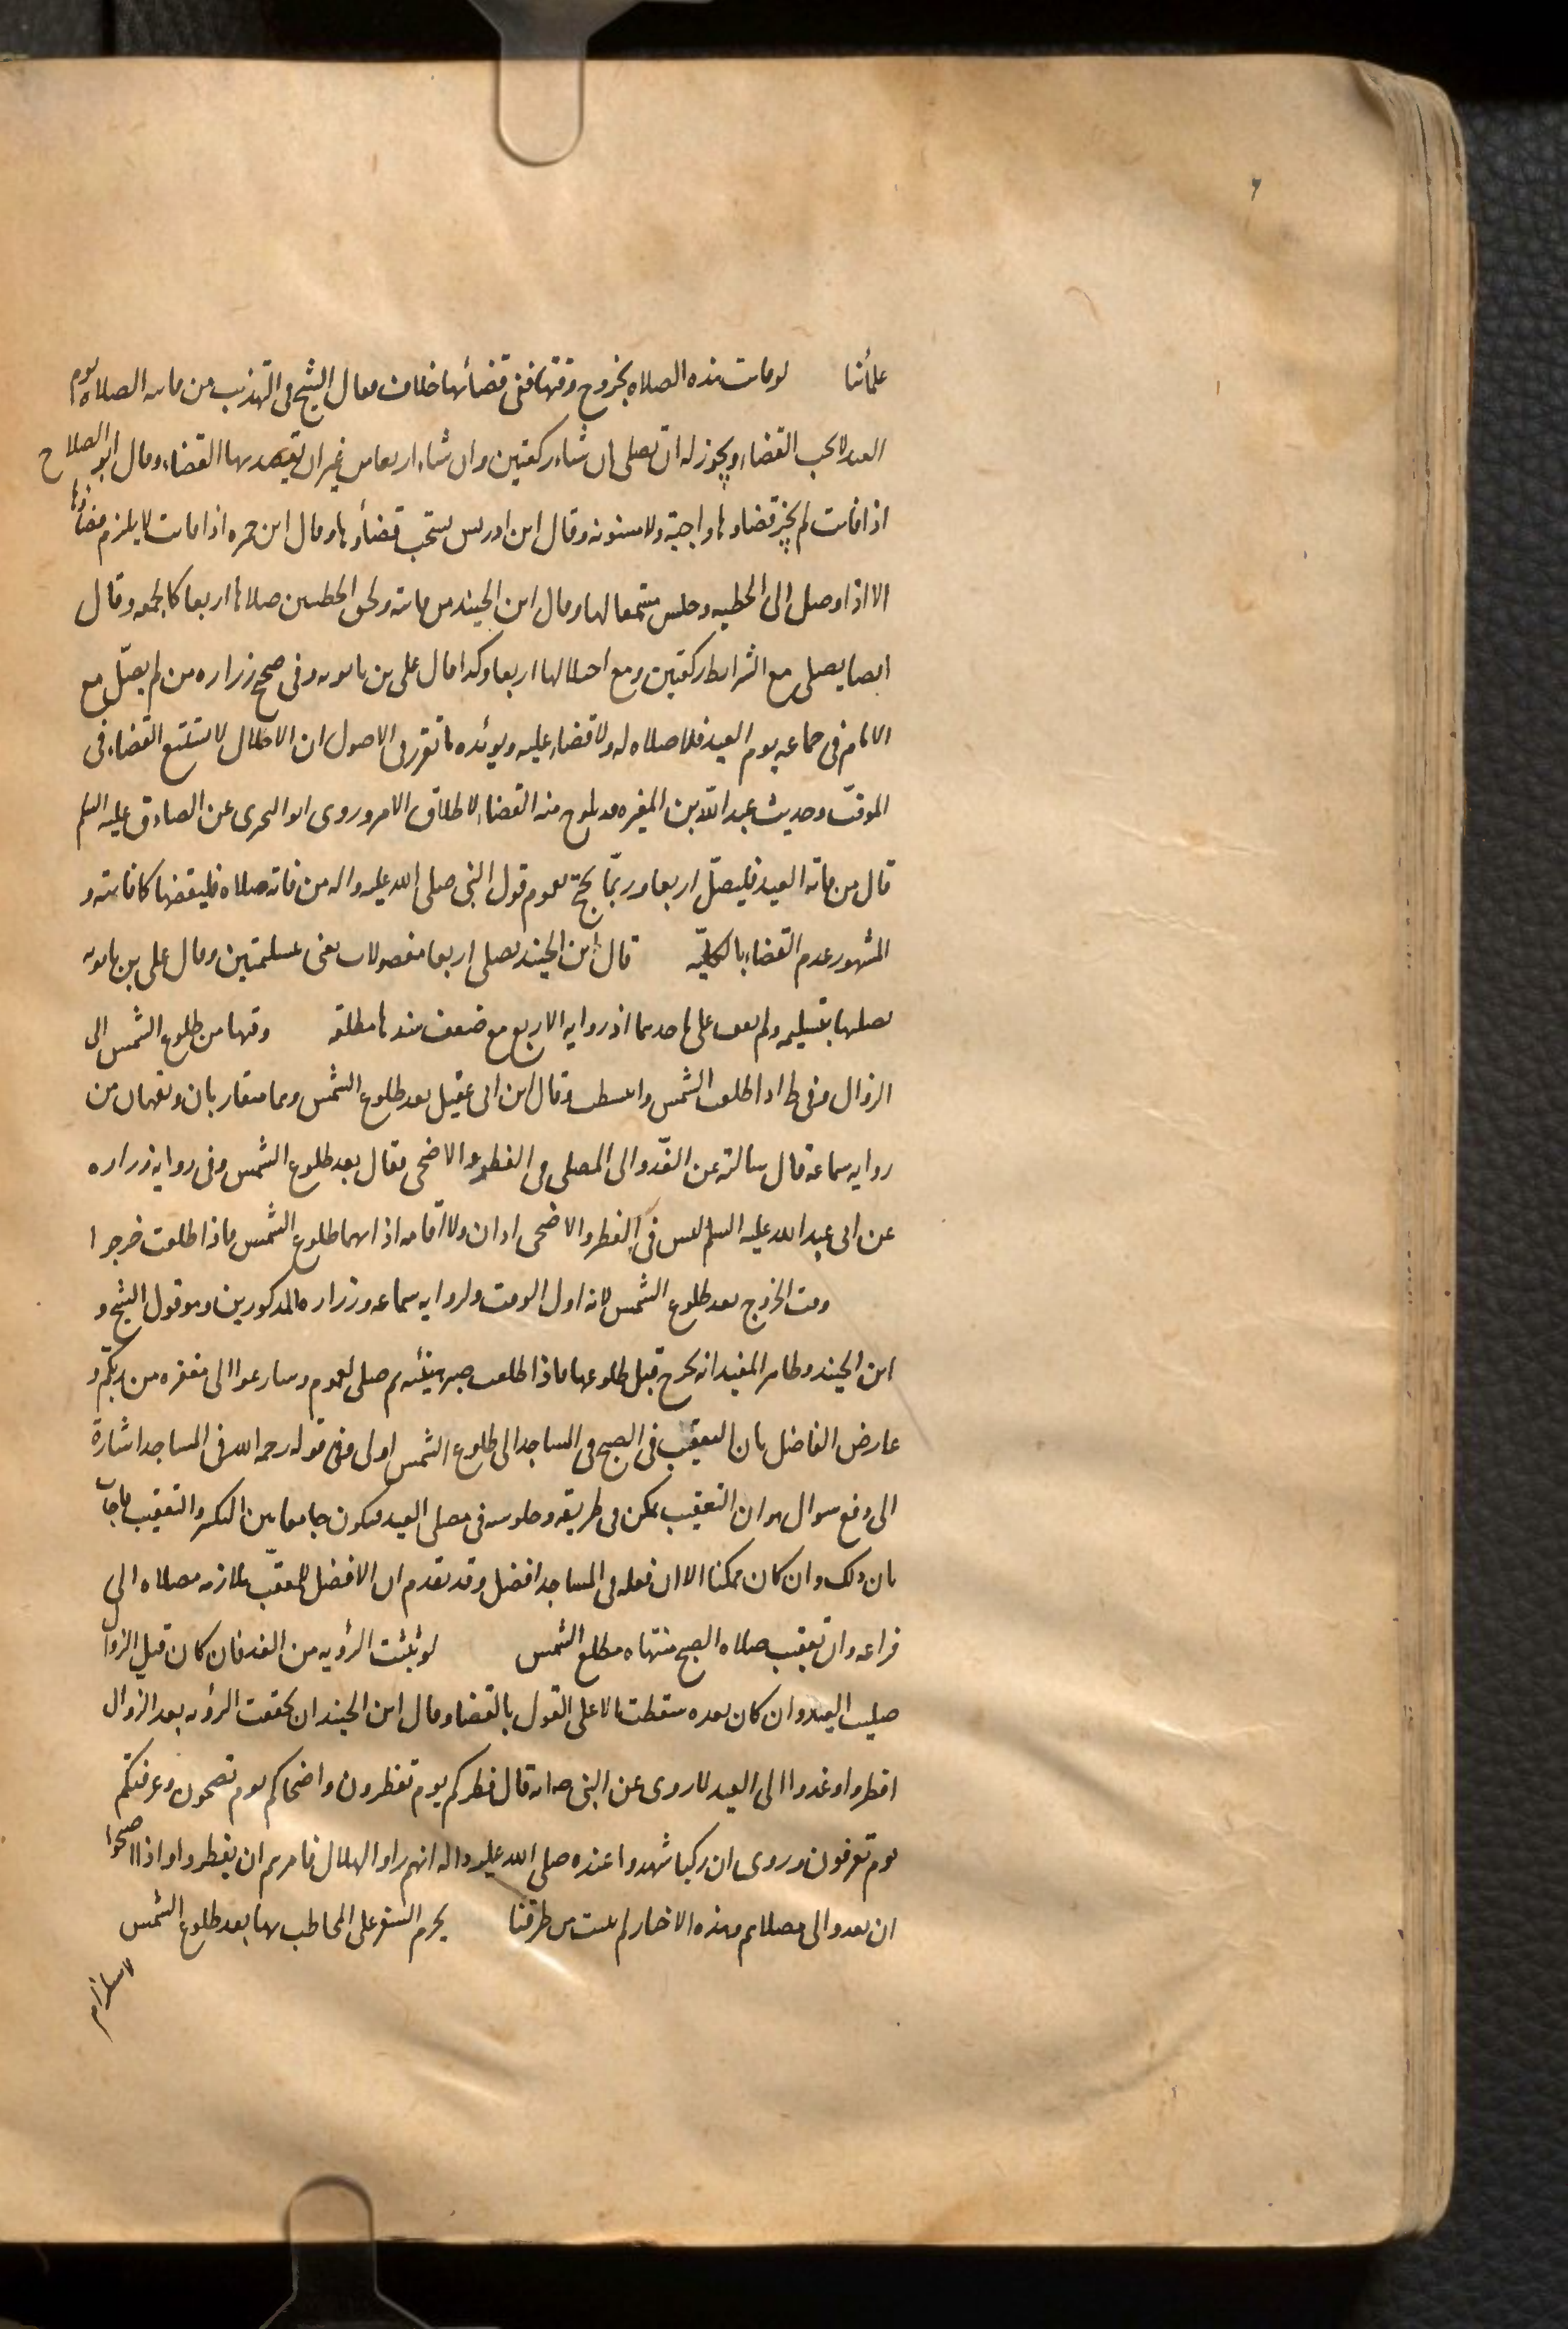 علمائنا لو فاتت هذه الصلاه بخروج وقتها ففى قضائها خلاف فقال الشيخ فى التهذيب من فاته الصلاه يوم
العيد لا يجب القضاء ويجوز له ان يصلى ان شاء ركعتين وان شاء اربعا من غير ان يقصد بها القضاء وقال ابو الصلاح
اذا فاتت لم يجز قضاوها واجبة ولا مسنونه وقال ابن ادريس يستحب قضأوها وقال ابن حمزه اذا فاتت لا يلزم قضاؤها
الا اذا وصل الى الخطبه وجلس مستمعا لها وقال ابن الجنيد من فاته ولحق الخطبتين صلاها اربعا كالجمعه وقال
ايضا يصلى مع الشرايط ركعتين ومع اختلالها اربعا وكذا قال على بن بابويه وفى صحيح زراره من لم يصلّ مع
الامام فى جماعه يوم العيد فلا صلاه له ولا قضاء عليه ويوئده ما تقرر فى الاصول ان الاخلال لا يستتبع القضاء فى
الموقّت وحديث عبد الله بن المغيره قد يلوح منه القضاء لاطلاق الامر وروى ابو البحترى عن الصادق عليه السلم
قال من فاته العيد فليصلّ اربعا وربّما يحتج بعموم قول النبى صلى الله عليه واله من فاته صلاه فليقضها كما فاتته و
المشهور عدم القضاء بالكليّه قال ابن الجنيد يصلى اربعا مفصولات يعنى بتسليمتين وقال على بن بابويه
يصليها بتسليمه ولم نقف على ماخذهما اذ روايه الاربع مع ضعف سندها مطلقه وقتها من طلوع الشمس الى
الزوال وفى ط اذا طلعت الشمس وانبسطت وقال ابن ابى عقيل بعد طلوع الشمس وهما متقاربان ويفهمان من
روايه سماعه قال سالته عن الغدّو الى المصلى فى الفطر والاضحى فقال بعد طلوع الشمس وفى روايه زراره
عن ابى عبد الله عليه السلم ليس فى الفطر والاضحى اذان ولا اقامه اذانهما طلوع الشمس فاذا طلعت خرجوا
وقت الخروج بعد طلوع الشمس لانه اول الوقت ولروايه سماعه وزراره المذكورين وهو قول الشيخ و
ابن الجنيد وظاهر المفيد انه يخرج قبل طلوعها فاذا طلعت صبر هنيئه ثم صلى لعموم وسارعوا الى مغفره من ربكم و
عارض الفاضل بان التعقيب فى الصبح فى المساجد الى طلوع الشمس اولى وفى قوله رحمه الله فى المساجد اشارة
الى دفع سوال هو ان التعقيب يمكن فى طريقه وجلوسه فى مصلى العيد فيكون جامعا بين التبكير والتعقيب فاجاب
بان ذلك وان كان ممكنا الا ان فعله فى المساجد افضل وقد تقدم ان الافضل للمعقّب ملازمه مصلاه الى
فراغه وان تعقيب صلاه الصبح منتهاه مطلع الشمس لو ثبتت الرؤيه من الغد فان كان قبل الزوال
صليت العيد وان كان بعده سقطت الا على القول بالقضا وقال ابن الجنيد ان تحققت الرؤيه بعد الزوال
افطروا وغدوا الى العيد لما روى عن النبى ص انه قال فطركم يوم تفطرون واضحاكم يوم تضحون وعرفتكم
يوم تعرفون وروى ان ركبا شهدوا عنده صلى الله عليه واله انهم راوا الهلال فامرهم ان يفطروا واذا اصبحوا
ان يغدوا الى مصلاهم وهذه الاخبار لم تثبت من طرقنا يحرم السفر على المخاطب بها بعد طلوع الشمس
لاستلزام